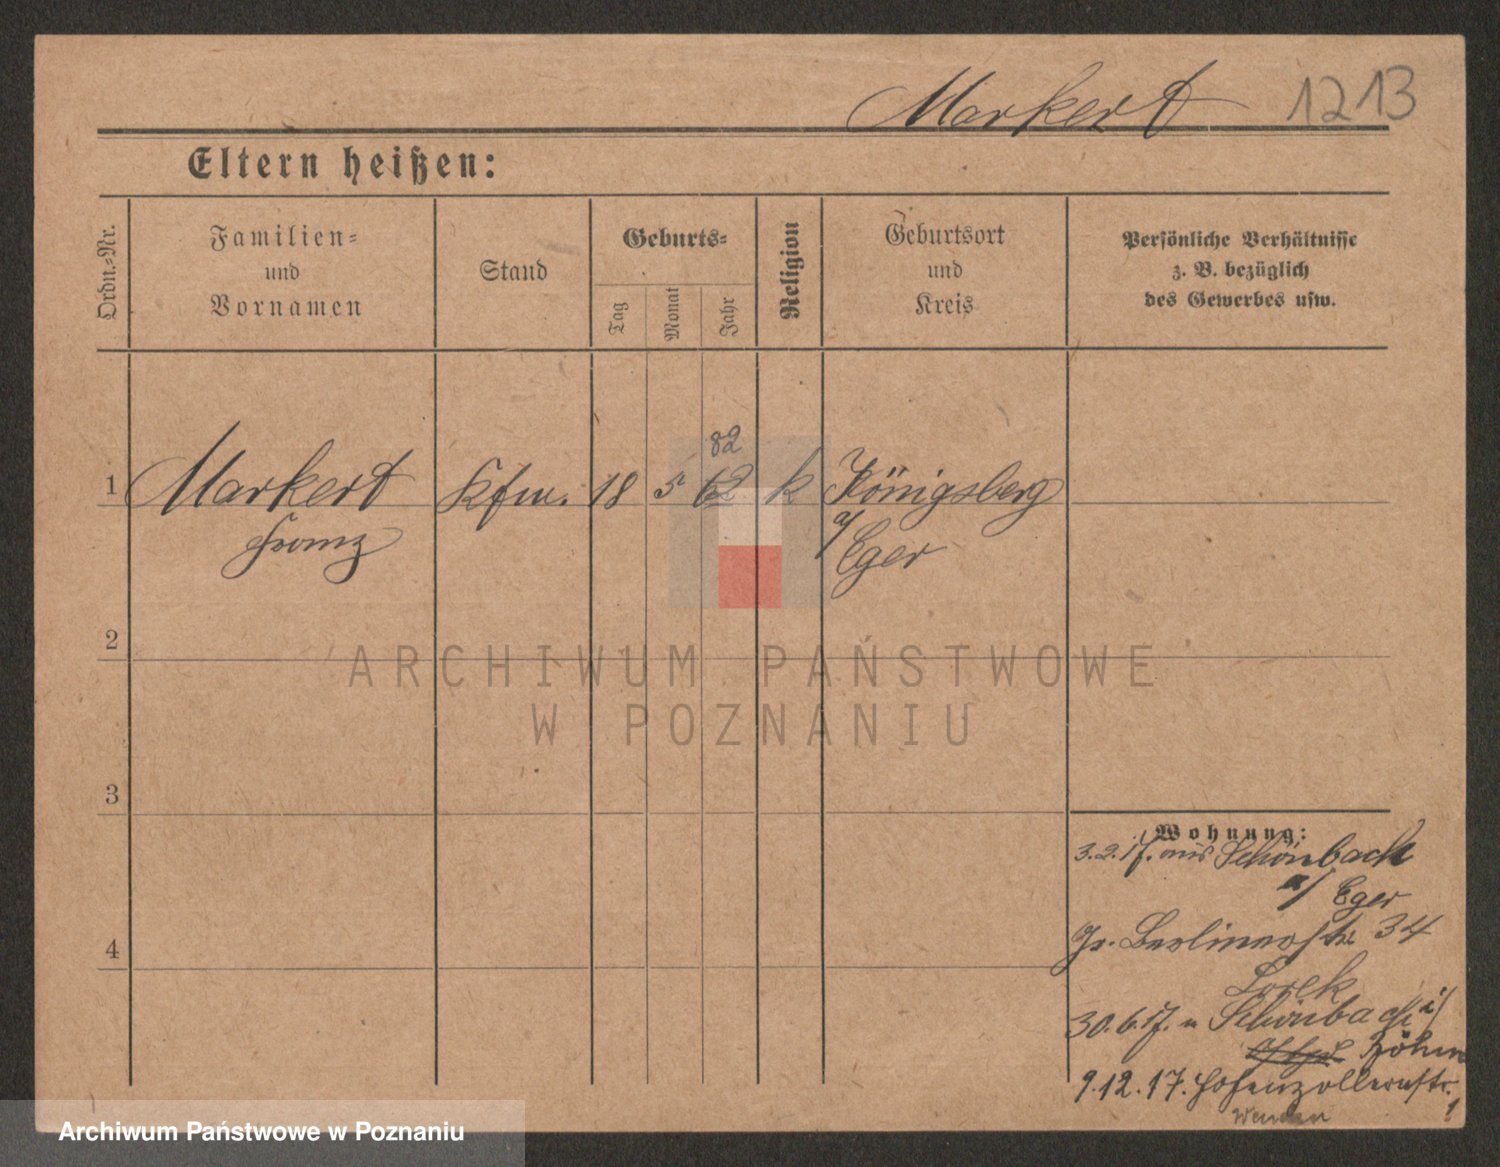 Markert 1213
Eltern heißen:
Ordn.-Nr.
Familien-
und
Vornamen
Stand
Geburts-
Tag
Monat
Jahr
Religion
Geburtsort
und
Kreis
Persönliche Verhältnisse
z. B. bezüglich
des Gewerbes usw.
82
1 Markert Kfm. 18 5 62 k Königsberg
Franz a/ Eger
2
3
4
ARCHIWUM PAŃSTWOWE
W POZNANIU
Wohnung:
3.2.17. aus Schönbach
a/ Eger
Gr. Berlinerstr 34
30.6.17. n Schönbach i/
Böhm
9.12.17. Hohenzollernstr.
1
Archiwum Państwowe w Poznaniu